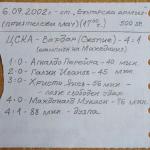 6.09.2002г - ст. „Българска армия“
(приятелски мач) (17⁰⁰ ч.) 500 зр.
ЦСКА - Вардар (Скопие) - 4:1
(шампион на Македония)
1:0 - Агналдо Перейра - 40 мин.
2:0 - Галин Иванов - 45 мин.
3:0 - Христо Янев - 56 мин.
пряк свободен удар
4:0 - Макдоналд Мукаси - 76 мин.
4:1 - 88 мин. - дузпа